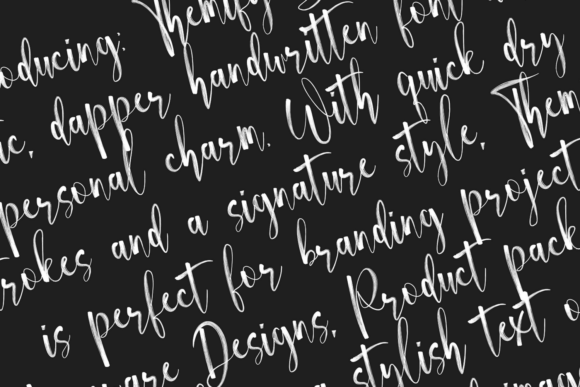 oducing: Themify
ic, dapper handwritten font
personal charm. With quick dry
trokes and a signature style, Them
is perfect for branding project
ware Designs, Product pack
a stylish text o